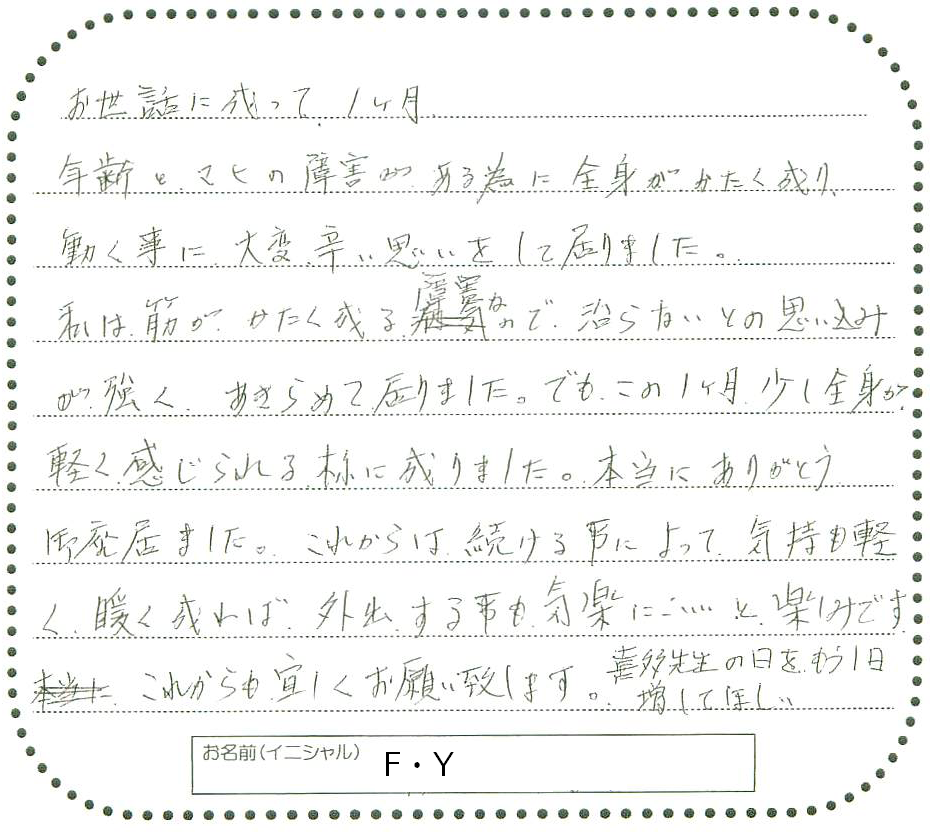 お世話に成って、1ヶ月、
年齢と、マヒの障害が、ある為に全身がかたく成り、
働く事に、大変、辛い思いをして居りました。
私は、筋が、かたく成る障害なので、治らないとの思い込み
が、強く、あきらめて居りました。でも、この1ヶ月、少し全身が、
軽く、感じられる様に成りました。本当にありがとう
御座居ました。これからは、続ける事によって、気持も軽
く、暖く成れば、外出、する事も、気楽に……と、楽しみです
本当に、これからも宜しくお願い致します。喜多先生の日を、もう1日
増してほしい
お名前(イニシャル) F・Y